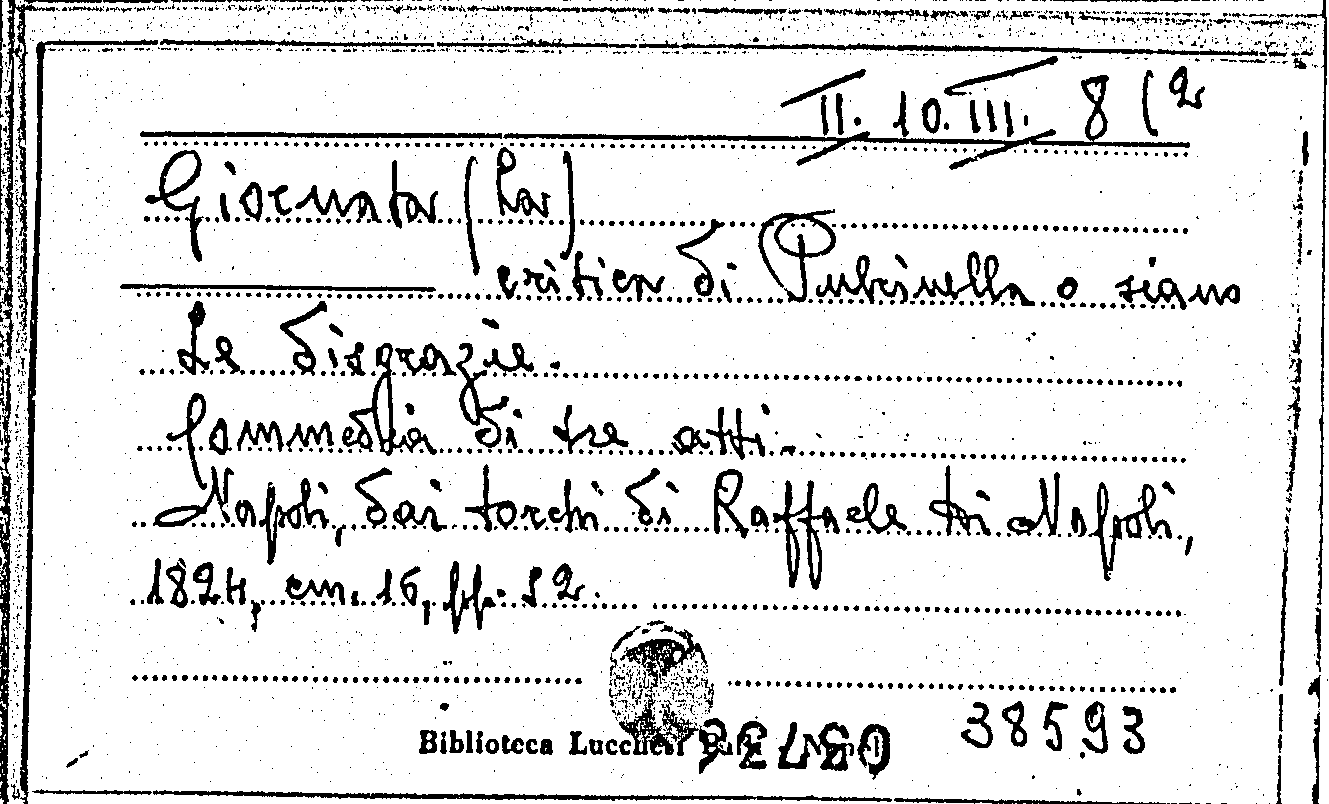 II. 10. III. 8 (2
Giornata (La)
critica di Pulcinella o siano
Le disgrazie.
Commedia di tre atti.
Napoli, dai torchi di Raffaele di Napoli,
1824, cm. 16, pp. 52.
38593
Biblioteca Lucchesi Palli